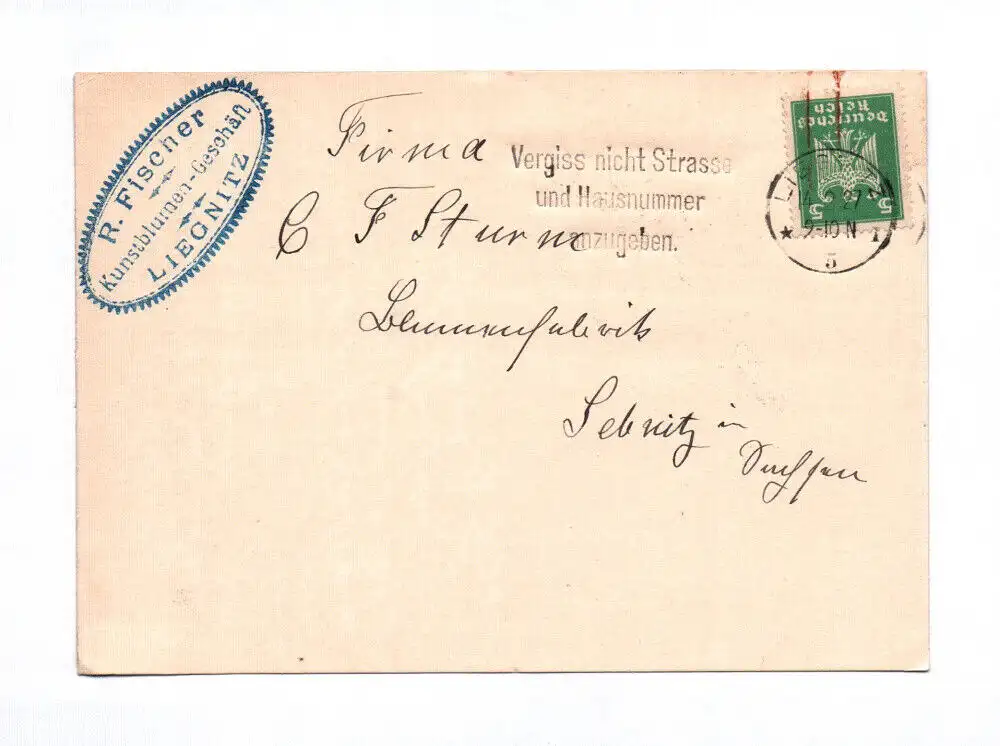 R. Fischer
Kunstblumen-Geschäft
LIEGNITZ
Firma
C F Sturm
Blumenfabrik
Sebnitz in
Sachsen
Vergiss nicht Strasse
und Hausnummer
anzugeben.
Deutsches
Reich
5 5
27
9-10 N
5